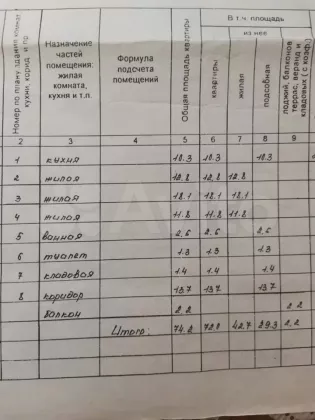 В т.ч. площадь
из нее
Номер по плану здания комнат, кухни, корид. и пр.
Назначение частей помещения: жилая комната, кухня и т.п.
Формула подсчета помещений
Общая площадь квартиры
квартиры
жилая
подсобная
лоджий, балконов террас, веранд и кладовых (с коэф.)
2 3 4 5 6 7 8 9
1 кухня 10.3 10.3 10.3
2 жилая 12.8 12.8 12.8
3 жилая 18.1 18.1 18.1
4 жилая 11.8 11.8 11.8
5 ванная 2.6 2.6 2.6
6 туалет 1.3 1.3 1.3
7 кладовая 1.4 1.4 1.4
8 коридор 13.7 13.7 13.7
балкон 2.2 2.2
Итого: 74.2 72.0 42.7 29.3 2.2